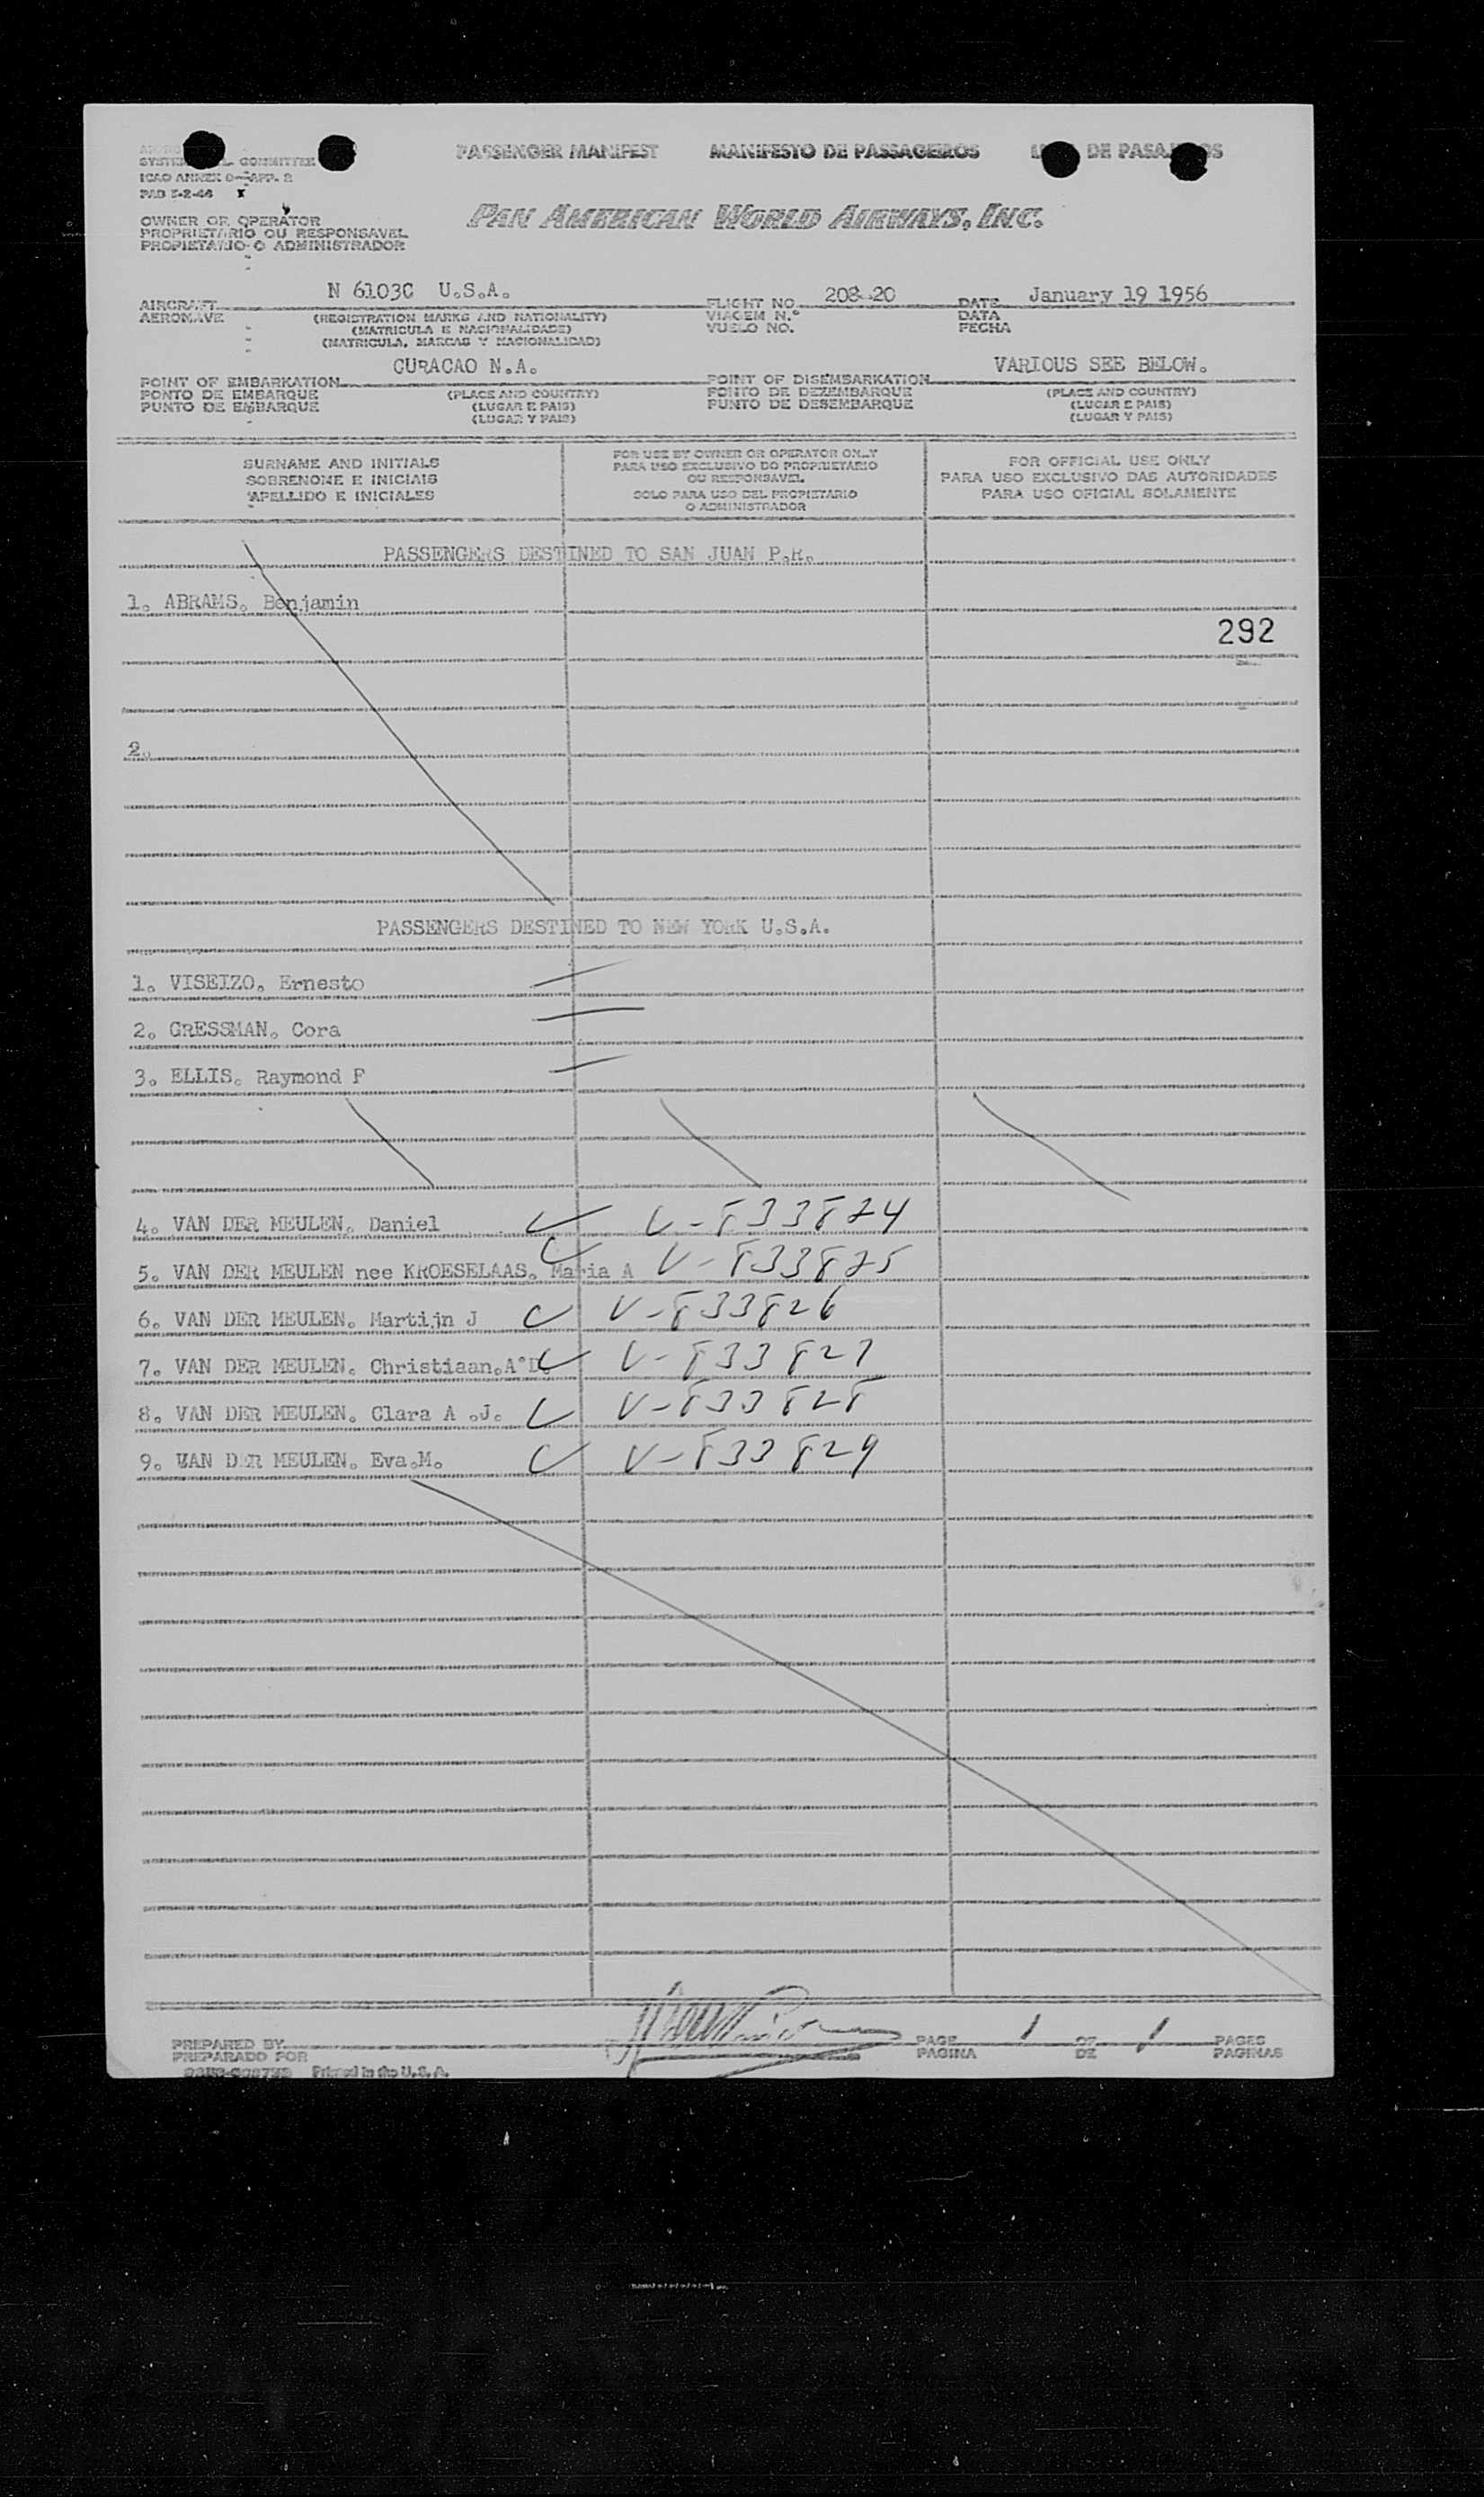 SYSTEM COMMITTEE
ICAO ANNEX 9—APP. 2
PAD 5-2-46 X
PASSENGER MANIFEST MANIFESTO DE PASSAGEIROS DE PASAJEROS
OWNER OR OPERATOR
PROPRIETÁRIO OU RESPONSAVEL
PROPIETARIO O ADMINISTRADOR
PAN AMERICAN WORLD AIRWAYS, INC.
AIRCRAFT N 6103C U.S.A. FLIGHT NO. 208-20 DATE January 19 1956
AERONAVE (REGISTRATION MARKS AND NATIONALITY) VIAGEM N.º DATA
(MATRICULA E NACIONALIDADE) VUELO NO. FECHA
(MATRICULA, MARCAS Y NACIONALIDAD)
POINT OF EMBARKATION CURACAO N.A. POINT OF DISEMBARKATION VARIOUS SEE BELOW.
PONTO DE EMBARQUE (PLACE AND COUNTRY) PONTO DE DEZEMBARQUE (PLACE AND COUNTRY)
PUNTO DE EMBARQUE (LUGAR E PAIS) PUNTO DE DESEMBARQUE (LUGAR E PAIS)
(LUGAR Y PAIS) (LUGAR Y PAIS)
SURNAME AND INITIALS
SOBRENOME E INICIAIS
APELLIDO E INICIALES
FOR USE BY OWNER OR OPERATOR ONLY
PARA USO EXCLUSIVO DO PROPRIETARIO
OU RESPONSAVEL
SOLO PARA USO DEL PROPIETARIO
O ADMINISTRADOR
FOR OFFICIAL USE ONLY
PARA USO EXCLUSIVO DAS AUTORIDADES
PARA USO OFICIAL SOLAMENTE
PASSENGERS DESTINED TO SAN JUAN P.R.
1. ABRAMS. Benjamin
292
2.
PASSENGERS DESTINED TO NEW YORK U.S.A.
1. VISEIZO. Ernesto
2. GRESSMAN. Cora
3. ELLIS. Raymond F
4. VAN DER MEULEN. Daniel V-833824
5. VAN DER MEULEN nee KROESELAAS. Maria A V-833825
6. VAN DER MEULEN. Martijn J V-833826
7. VAN DER MEULEN. Christiaan.A.D. V-833827
8. VAN DER MEULEN. Clara A .J. V-833828
9. VAN DER MEULEN. Eva.M. V-833829
PREPARED BY PAGE 1 OF 1 PAGES
PREPARADO POR PAGINA DE PAGINAS
Printed in the U.S.A.